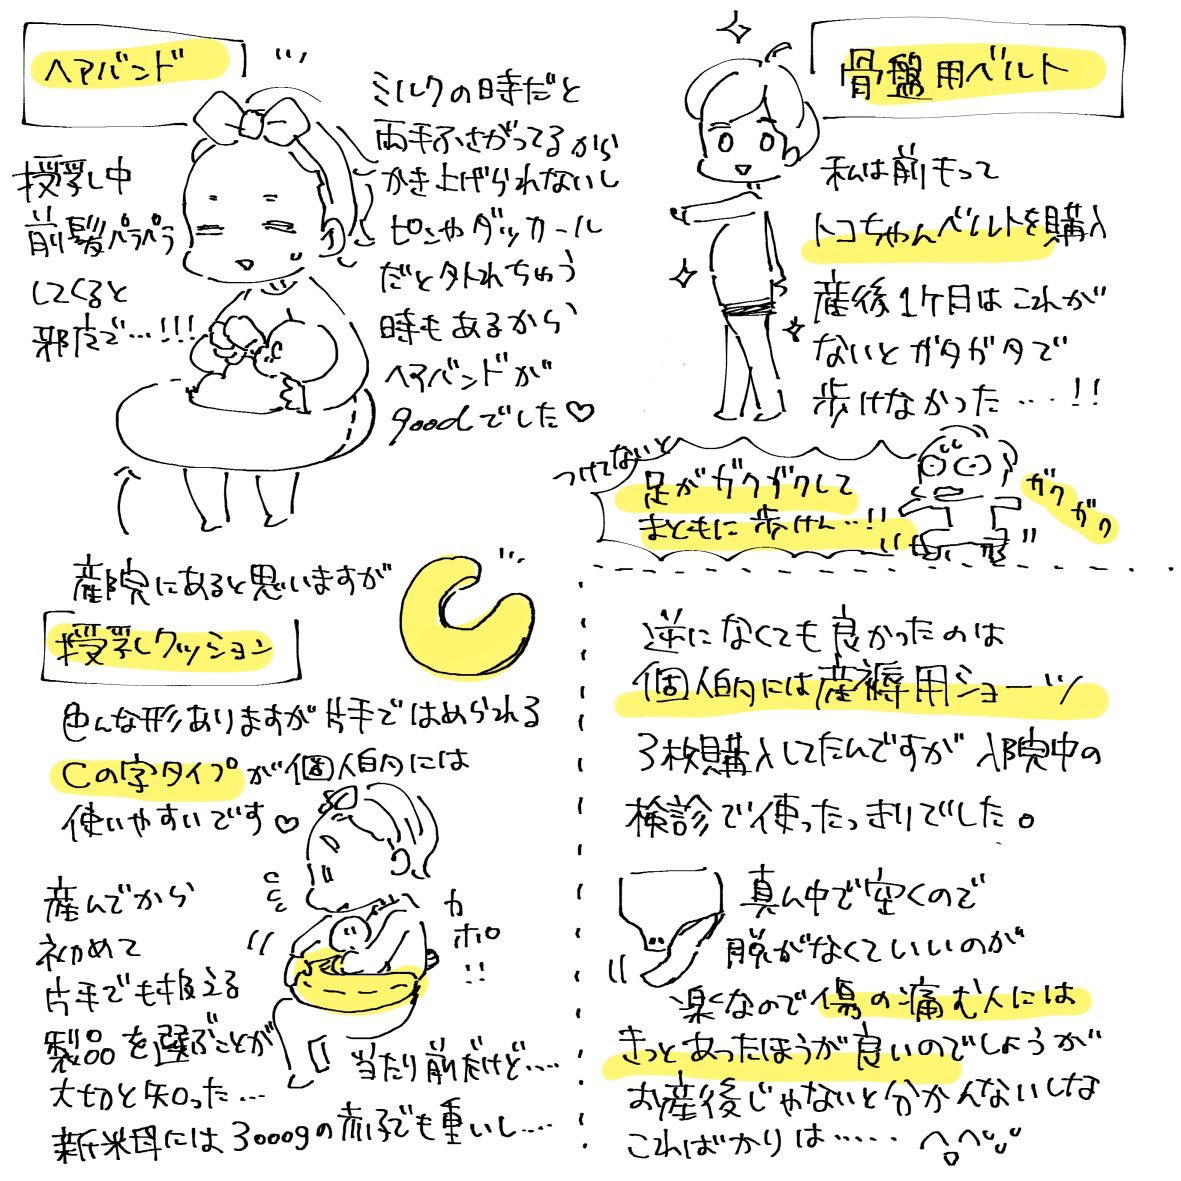 ヘアバンド
授乳中
前髪パラパラ
してくると
邪广で…!!!
ミルクの時だと
両手ふさがってるから
かき上げられないし
ピンやダッカール
だと外れちゃう
時もあるから
ヘアバンドが
goodでした♡
骨盤用ベルト
私は前もって
トコちゃんベルトを購入
産後1ケ月はこれが
ないとガタガタで
歩けなかった…!!
つけてないと
足がガクガクして
まともに歩けん…!!
ガクガク
産院にあると思いますが
授乳クッション
色んな形ありますが片手ではめられる
Cの字タイプが個人的には
使いやすいです♡
産んでから
初めて
片手でも扱える
製品を選ぶことが
大切と知った…
カポ!!
当たり前だけど….
新米母には3000gの赤子でも重いし….
逆になくても良かったのは
個人的には産褥用ショーツ
3枚購入してたんですが入院中の
検診で使ったっきりでした。
真ん中で空くので
脱がなくていいのが
楽なので傷の痛む人には
きっとあったほうが良いのでしょうが
お産後じゃないと分かんないしな
こればかりは……